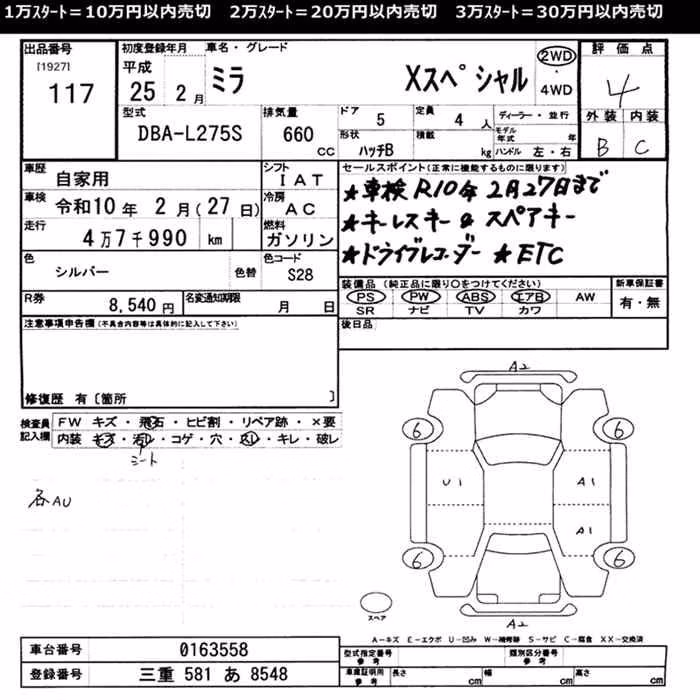 1万スタート＝10万円以内売切　2万スタート＝20万円以内売切　3万スタート＝30万円以内売切
出品番号
[1927]
117
初度登録年月
平成
25 2月
車名・グレード
ミラ Xスペシャル
2WD
・
4WD
評価点
4
外装 内装
B C
型式
DBA-L275S
排気量
660
cc
ドア
5
定員
4 人
ディーラー・並行
形状
ハッチB
積載
kg
モデル年式 年
ハンドル 左・右
車歴
自家用
シフト
IAT
車検
令和10年 2月(27日)
冷房
AC
走行
4万7千990 km
燃料
ガソリン
色
シルバー
色替
色コード
S28
R券
8,540円
名変通知期限
月 日
セールスポイント(正常に機能するものに限ります)
★車検R10年2月27日まで
★キーレスキー&スペアキー
★ドライブレコーダー ★ETC
装備品(純正品に限り○をつけてください)
PS PW ABS エアB AW
SR ナビ TV カワ
新車保証書
有・無
後日品
注意事項申告欄(不具合内容等は具体的に記入して下さい)
修復歴 有〔箇所 〕
検査員
記入欄
FW キズ・飛石・ヒビ割・リペア跡・×要
内装 キズ・汚レ・コゲ・穴・スレ・キレ・破レ
シート
各AU
A2
6 6
U1 A1
A1
6 6
スペア
A2
A－キズ E－エクボ U－凹み W－補修跡 S－サビ C－腐食 XX－交換済
車台番号
0163558
登録番号
三重 581 あ 8548
型式指定番号
参考
類別区分番号
参考
車庫証明用
参考
長さ cm
幅 cm
高さ cm